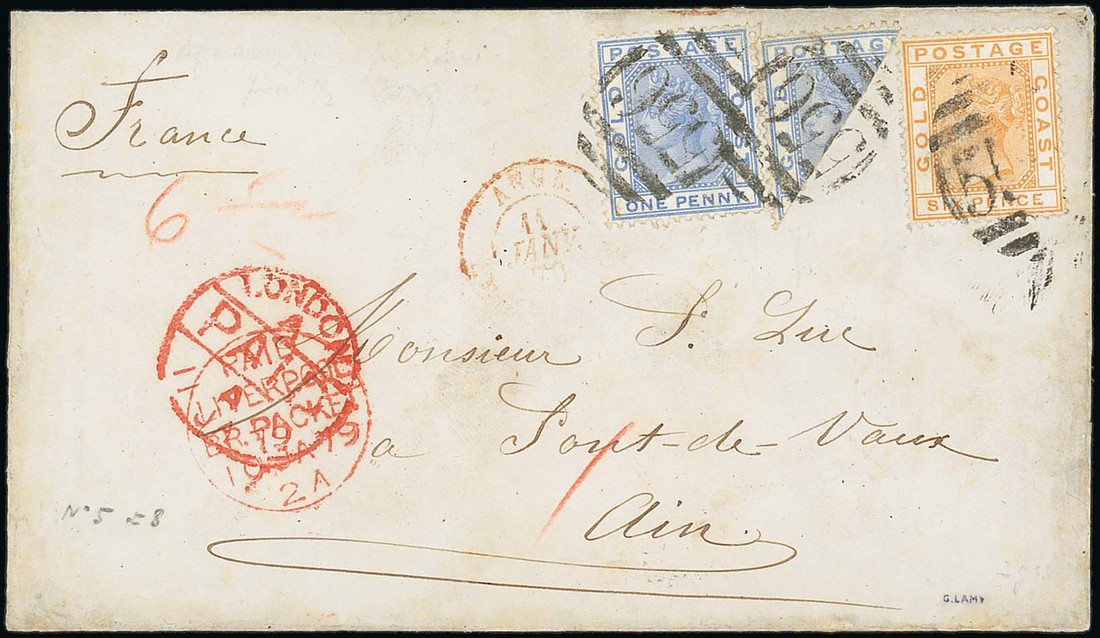 France
6
POSTAGE
GOLD
ONE PENNY
POSTAGE
POSTAGE
GOLD
COAST
SIX PENCE
ANGL.
11
JANV.
LONDON
PAID
LIVERPOOL
BR. PACKET
2 A
Monsieur St. Luc
a Pont-de-Vaux
Ain.
N° 5 + 8
G. LAMY